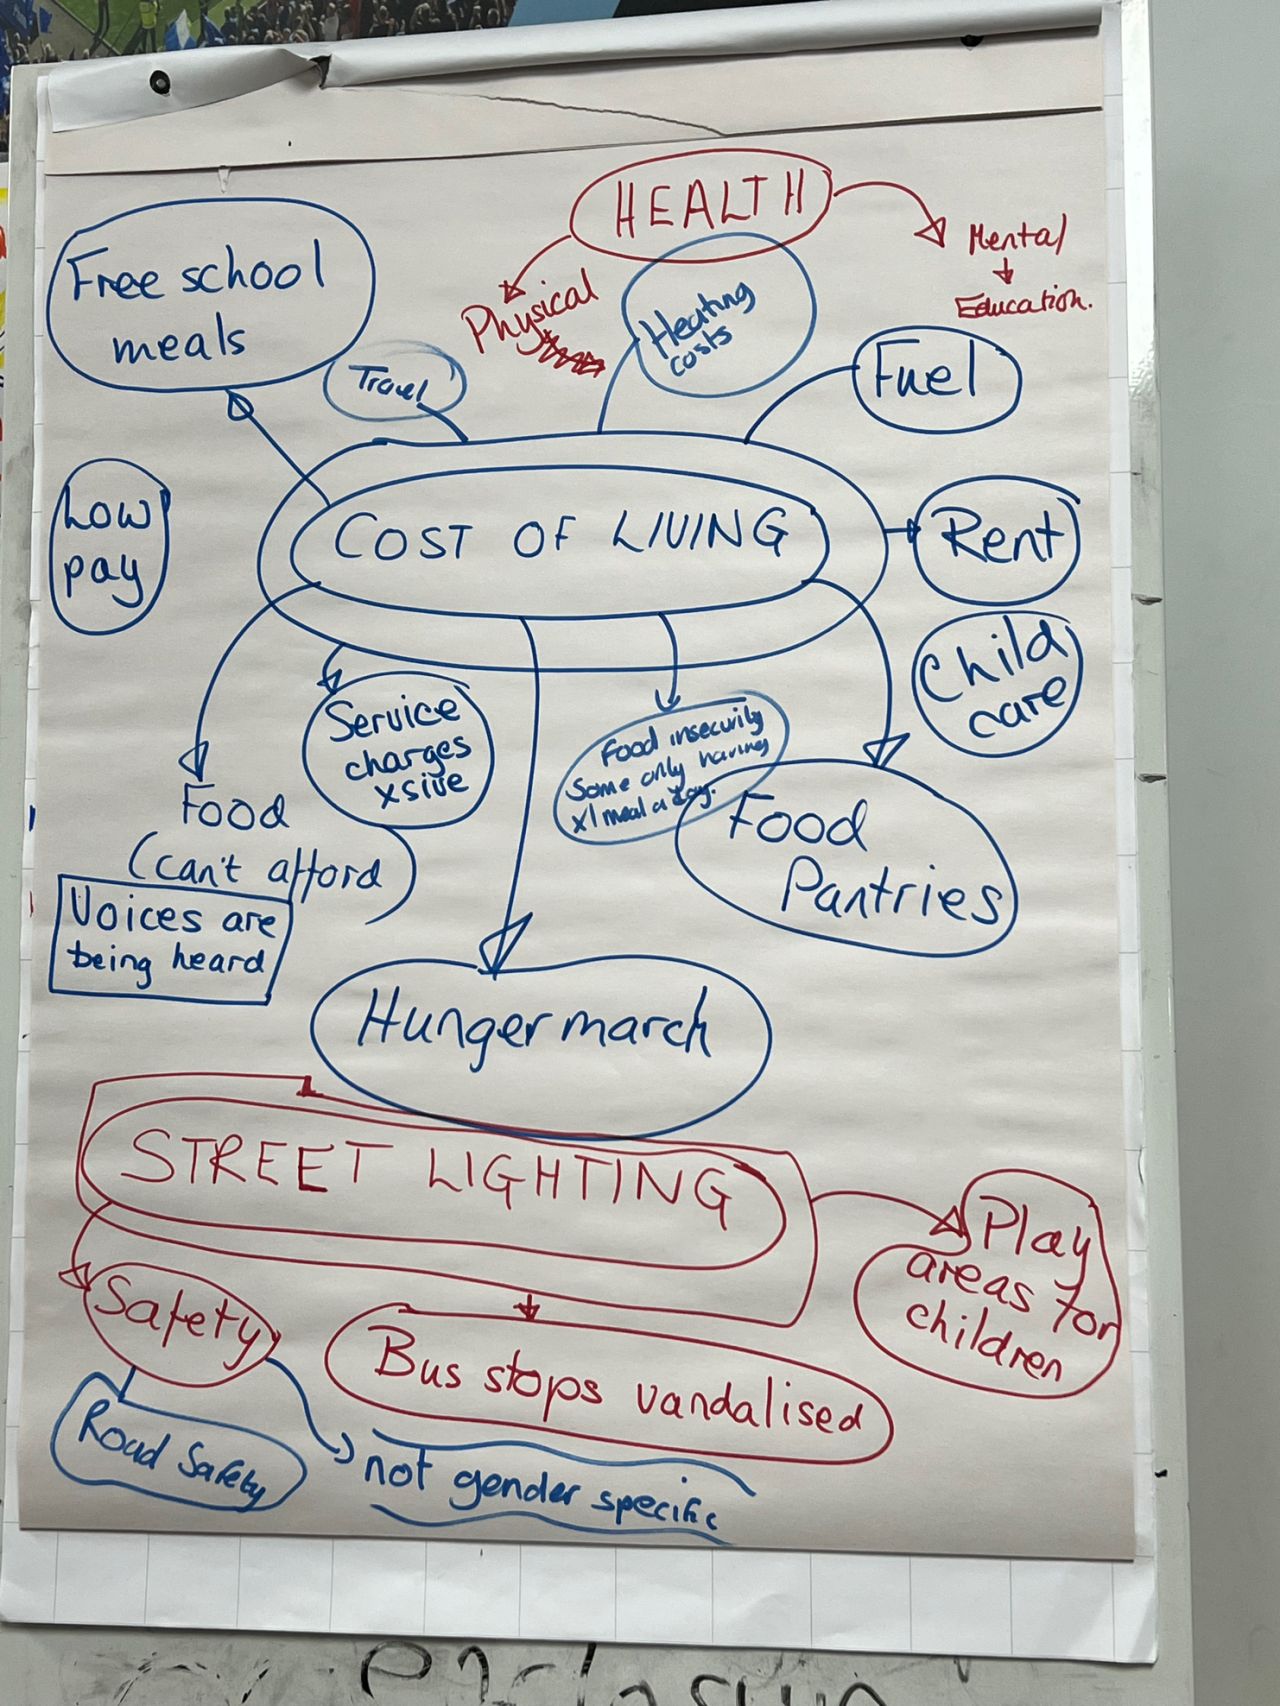 HEALTH
Mental
Education.
Physical
Free school
meals
Heating
costs
Travel
Fuel
Low
pay
COST OF LIVING
Rent
Child
care
Service
charges
xsive
Food insecurity
Some only having
x1 meal a day.
Food
(can't afford)
Food
Pantries
Voices are
being heard
Hunger march
STREET LIGHTING
Play
areas for
children
Safety
Bus stops vandalised
Road Safety
not gender specific